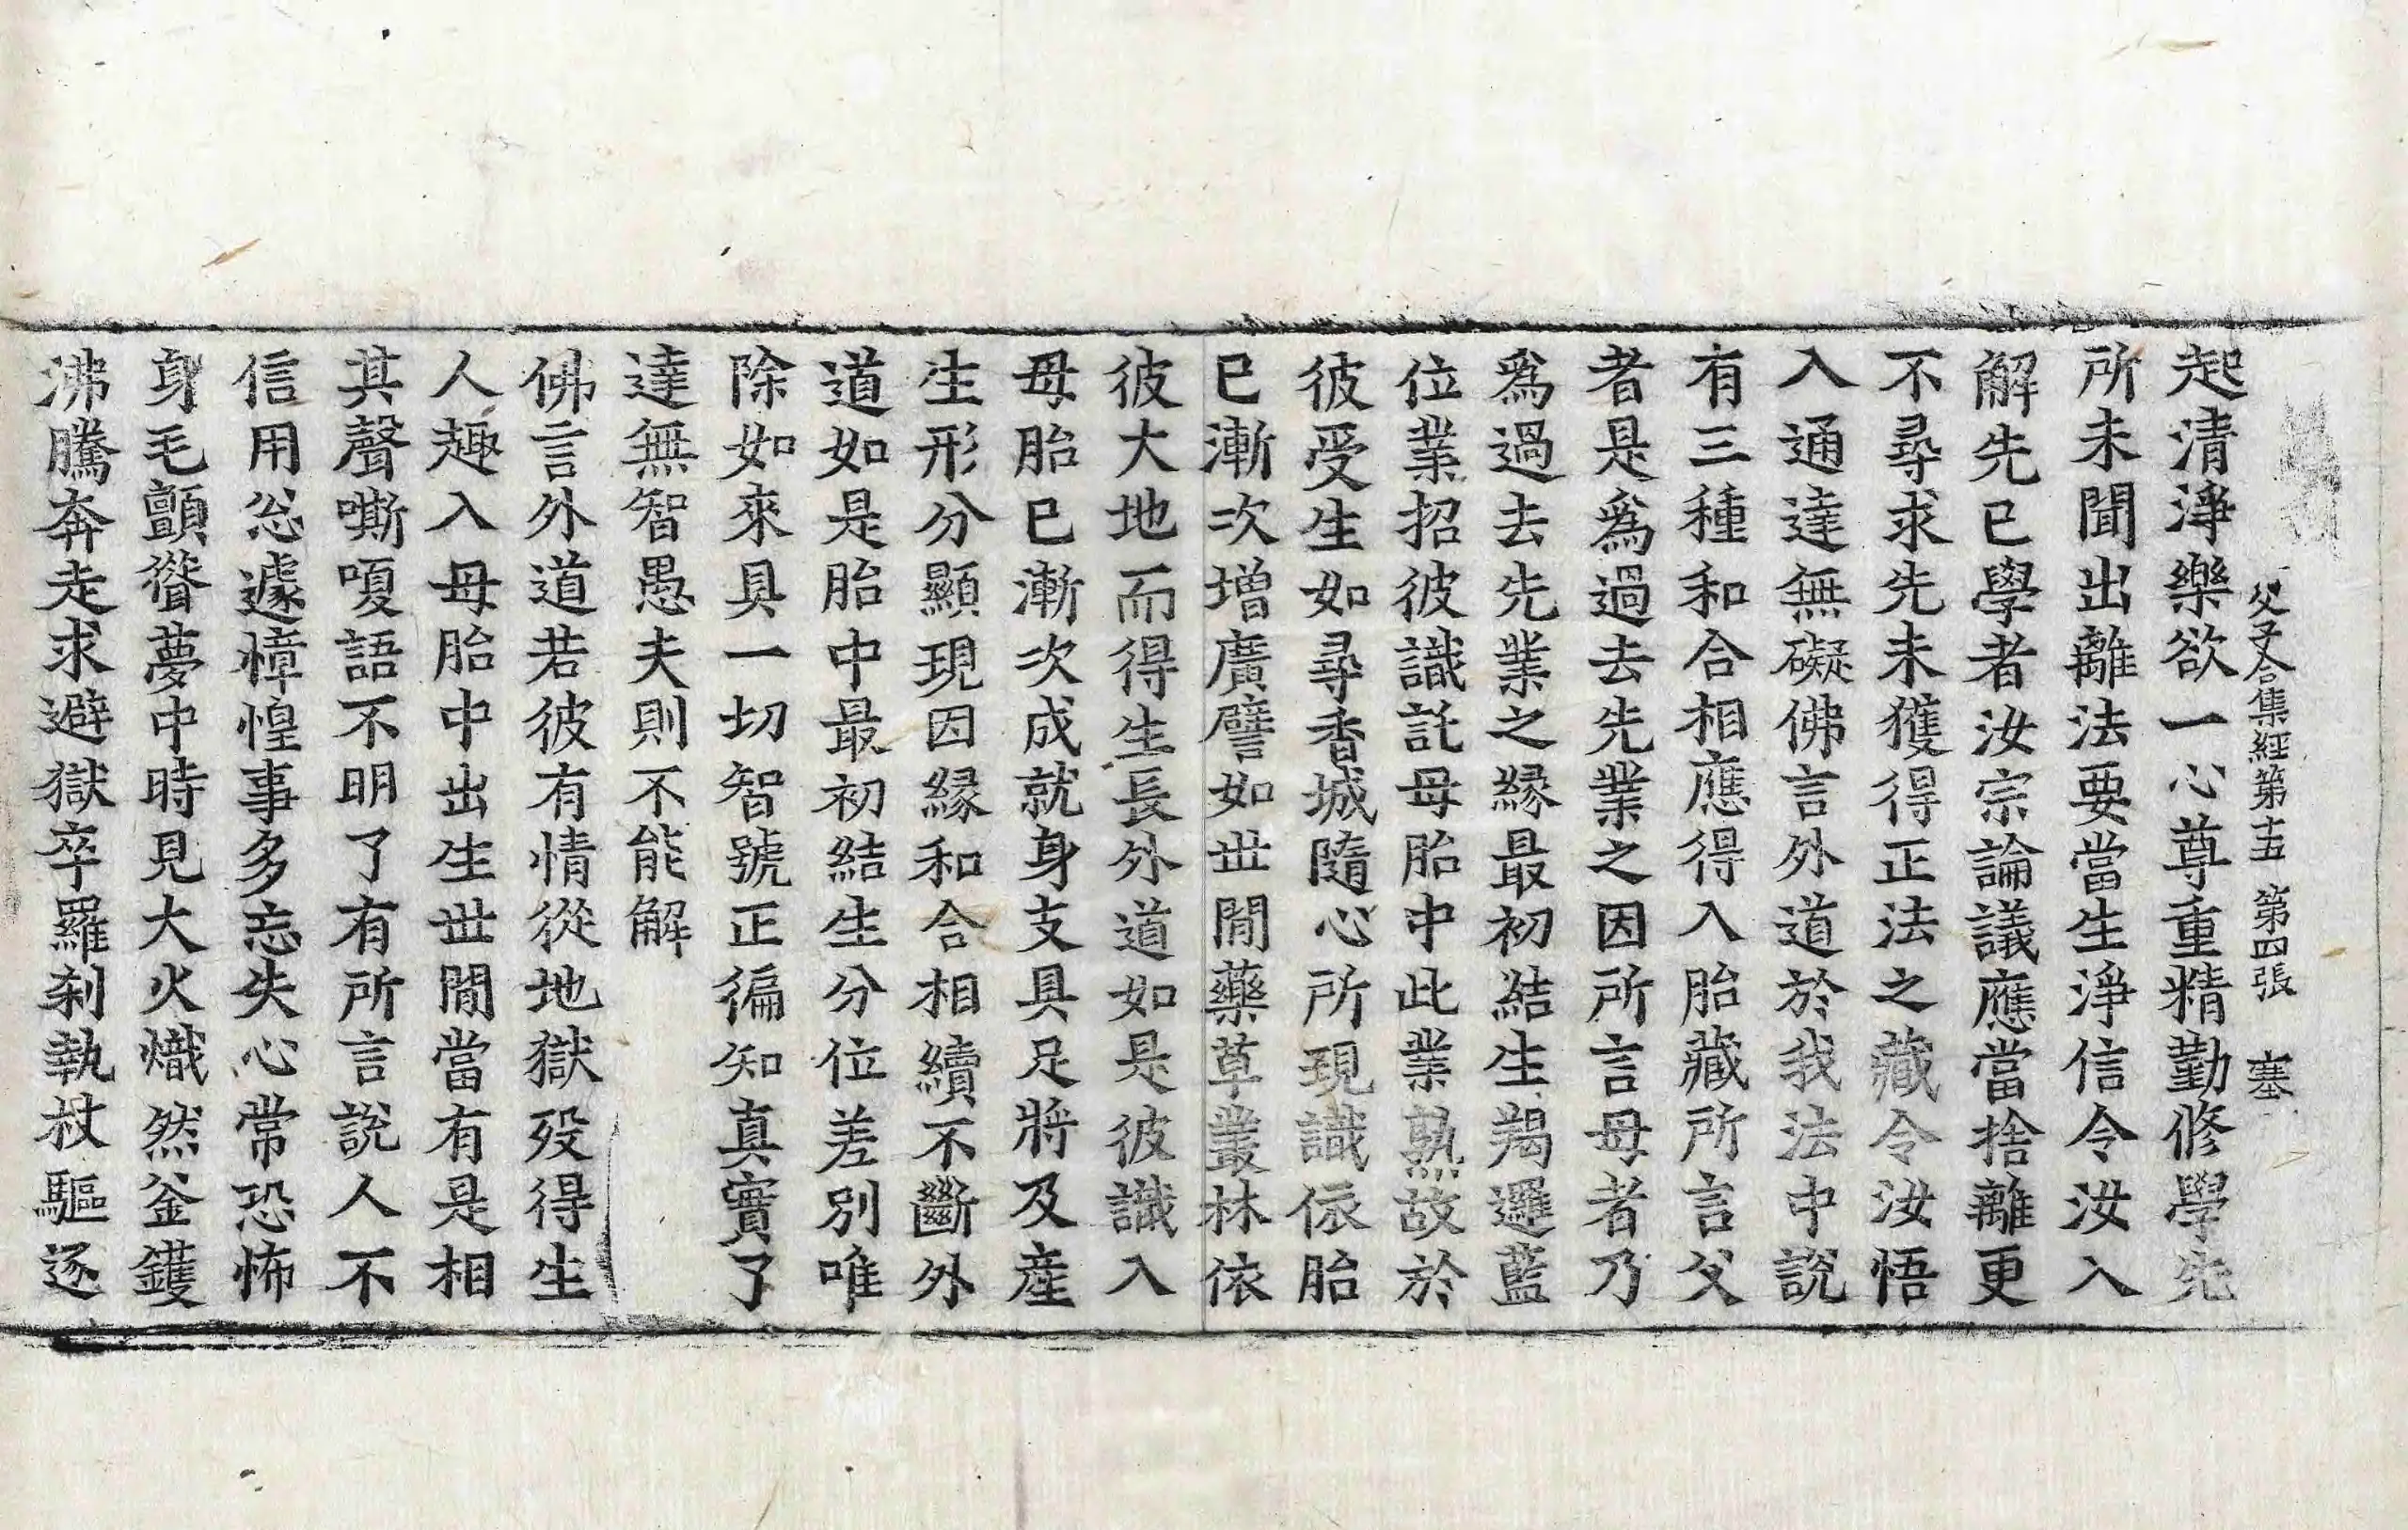 父子合集經第十五 第四張 塞
起清淨樂欲一心尊重精勤修學先
所未聞出離法要當生淨信令汝入
解先已學者汝宗論議應當捨離更
不尋求先未獲得正法之藏令汝悟
入通達無礙佛言外道於我法中說
有三種和合相應得入胎藏所言父
者是爲過去先業之因所言母者乃
爲過去先業之緣最初結生羯邏藍
位業招彼識託母胎中此業熟故於
彼受生如尋香城隨心所現識依胎
已漸次增廣譬如世間藥草叢林依
彼大地而得生長外道如是彼識入
母胎已漸次成就身支具足將及產
生形分顯現因緣和合相續不斷外
道如是胎中最初結生分位差別唯
除如來具一切智號正徧知真實了
達無智愚夫則不能解
佛言外道若彼有情從地獄歿得生
人趣入母胎中出生世間當有是相
其聲嘶嗄語不明了有所言說人不
信用忩遽慞惶事多忘失心常恐怖
身毛顫聳夢中時見大火熾然釜鑊
沸騰奔走求避獄卒羅刹執杖驅逐